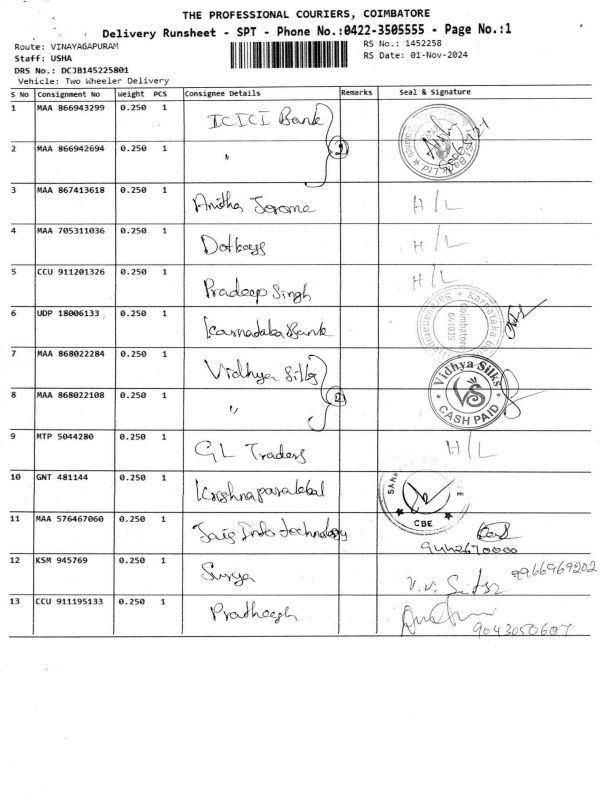 THE PROFESSIONAL COURIERS, COIMBATORE
Delivery Runsheet - SPT - Phone No.:0422-3505555 - Page No.:1
Route: VINAYAGAPURAM
RS No.: 1452258
Staff: USHA
RS Date: 01-Nov-2024
DRS No.: DCJB145225801
Vehicle: Two Wheeler Delivery
S No Consignment No Weight PCS Consignee Details Remarks Seal & Signature
1 MAA 866943299 0.250 1 ICICI Bank
2 MAA 866942694 0.250 1 " 2
3 MAA 867413618 0.250 1 Anitha Jerome H/L
4 MAA 705311036 0.250 1 Dotkeys H/L
5 CCU 911201326 0.250 1 Pradeep Singh H/L
6 UDP 18006133 0.250 1 Karnataka Bank Karnataka Coimbatore 641035
7 MAA 868022284 0.250 1 Vidhya Silks Vidhya Silks VS CASH PAID
8 MAA 868022108 0.250 1 " 2
9 MTP 5044280 0.250 1 GL Traders H/L
10 GNT 481144 0.250 1 CBE
11 MAA 576467060 0.250 1 Info technology 9442670000
12 KSM 945769 0.250 1 Surya 9966969202
13 CCU 911195133 0.250 1 9043050607